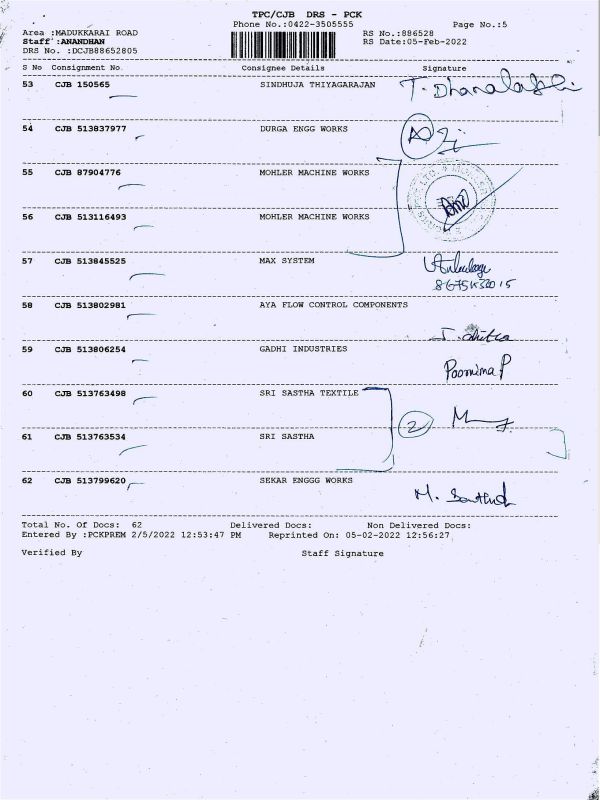 TPC/CJB DRS - PCK
Phone No.:0422-3505555 Page No.:5
Area :MADUKKARAI ROAD RS No.:886528
Staff :ANANDHAN RS Date:05-Feb-2022
DRS No. :DCJB88652805
S No Consignment No. Consignee Details Signature
53 CJB 150565 SINDHUJA THIYAGARAJAN
54 CJB 513837977 DURGA ENGG WORKS
55 CJB 87904776 MOHLER MACHINE WORKS
56 CJB 513116493 MOHLER MACHINE WORKS
57 CJB 513845525 MAX SYSTEM
58 CJB 513802981 AYA FLOW CONTROL COMPONENTS
59 CJB 513806254 GADHI INDUSTRIES
Poornima P
60 CJB 513763498 SRI SASTHA TEXTILE
2
61 CJB 513763534 SRI SASTHA
62 CJB 513799620 SEKAR ENGGG WORKS
Total No. Of Docs: 62 Delivered Docs: Non Delivered Docs:
Entered By :PCKPREM 2/5/2022 12:53:47 PM Reprinted On: 05-02-2022 12:56:27
Verified By Staff Signature